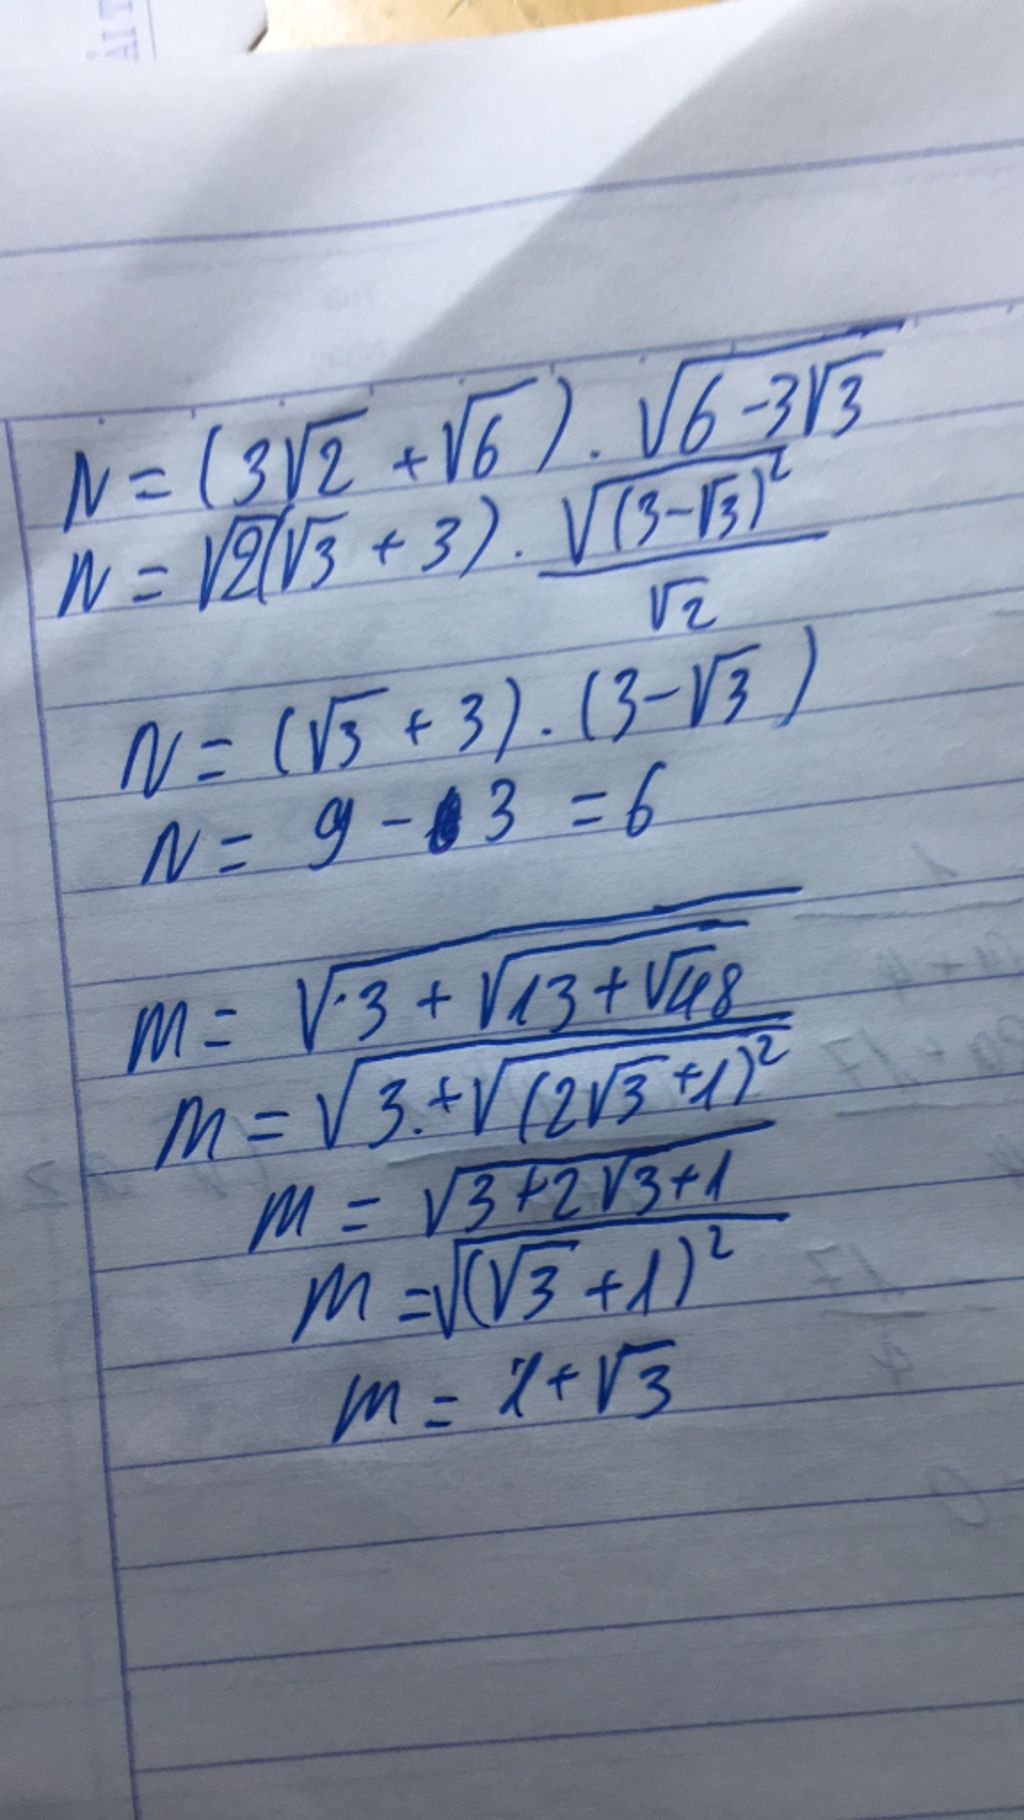 N = (3√2 + √6) . √(6 - 3√3)
N = √2(√3 + 3) . √((3 - √3)²) / √2
N = (√3 + 3) . (3 - √3)
N = 9 - 3 = 6
M = √(3 + √(13 + √48))
M = √(3 + √((2√3 + 1)²))
M = √(3 + 2√3 + 1)
M = √((√3 + 1)²)
M = 1 + √3